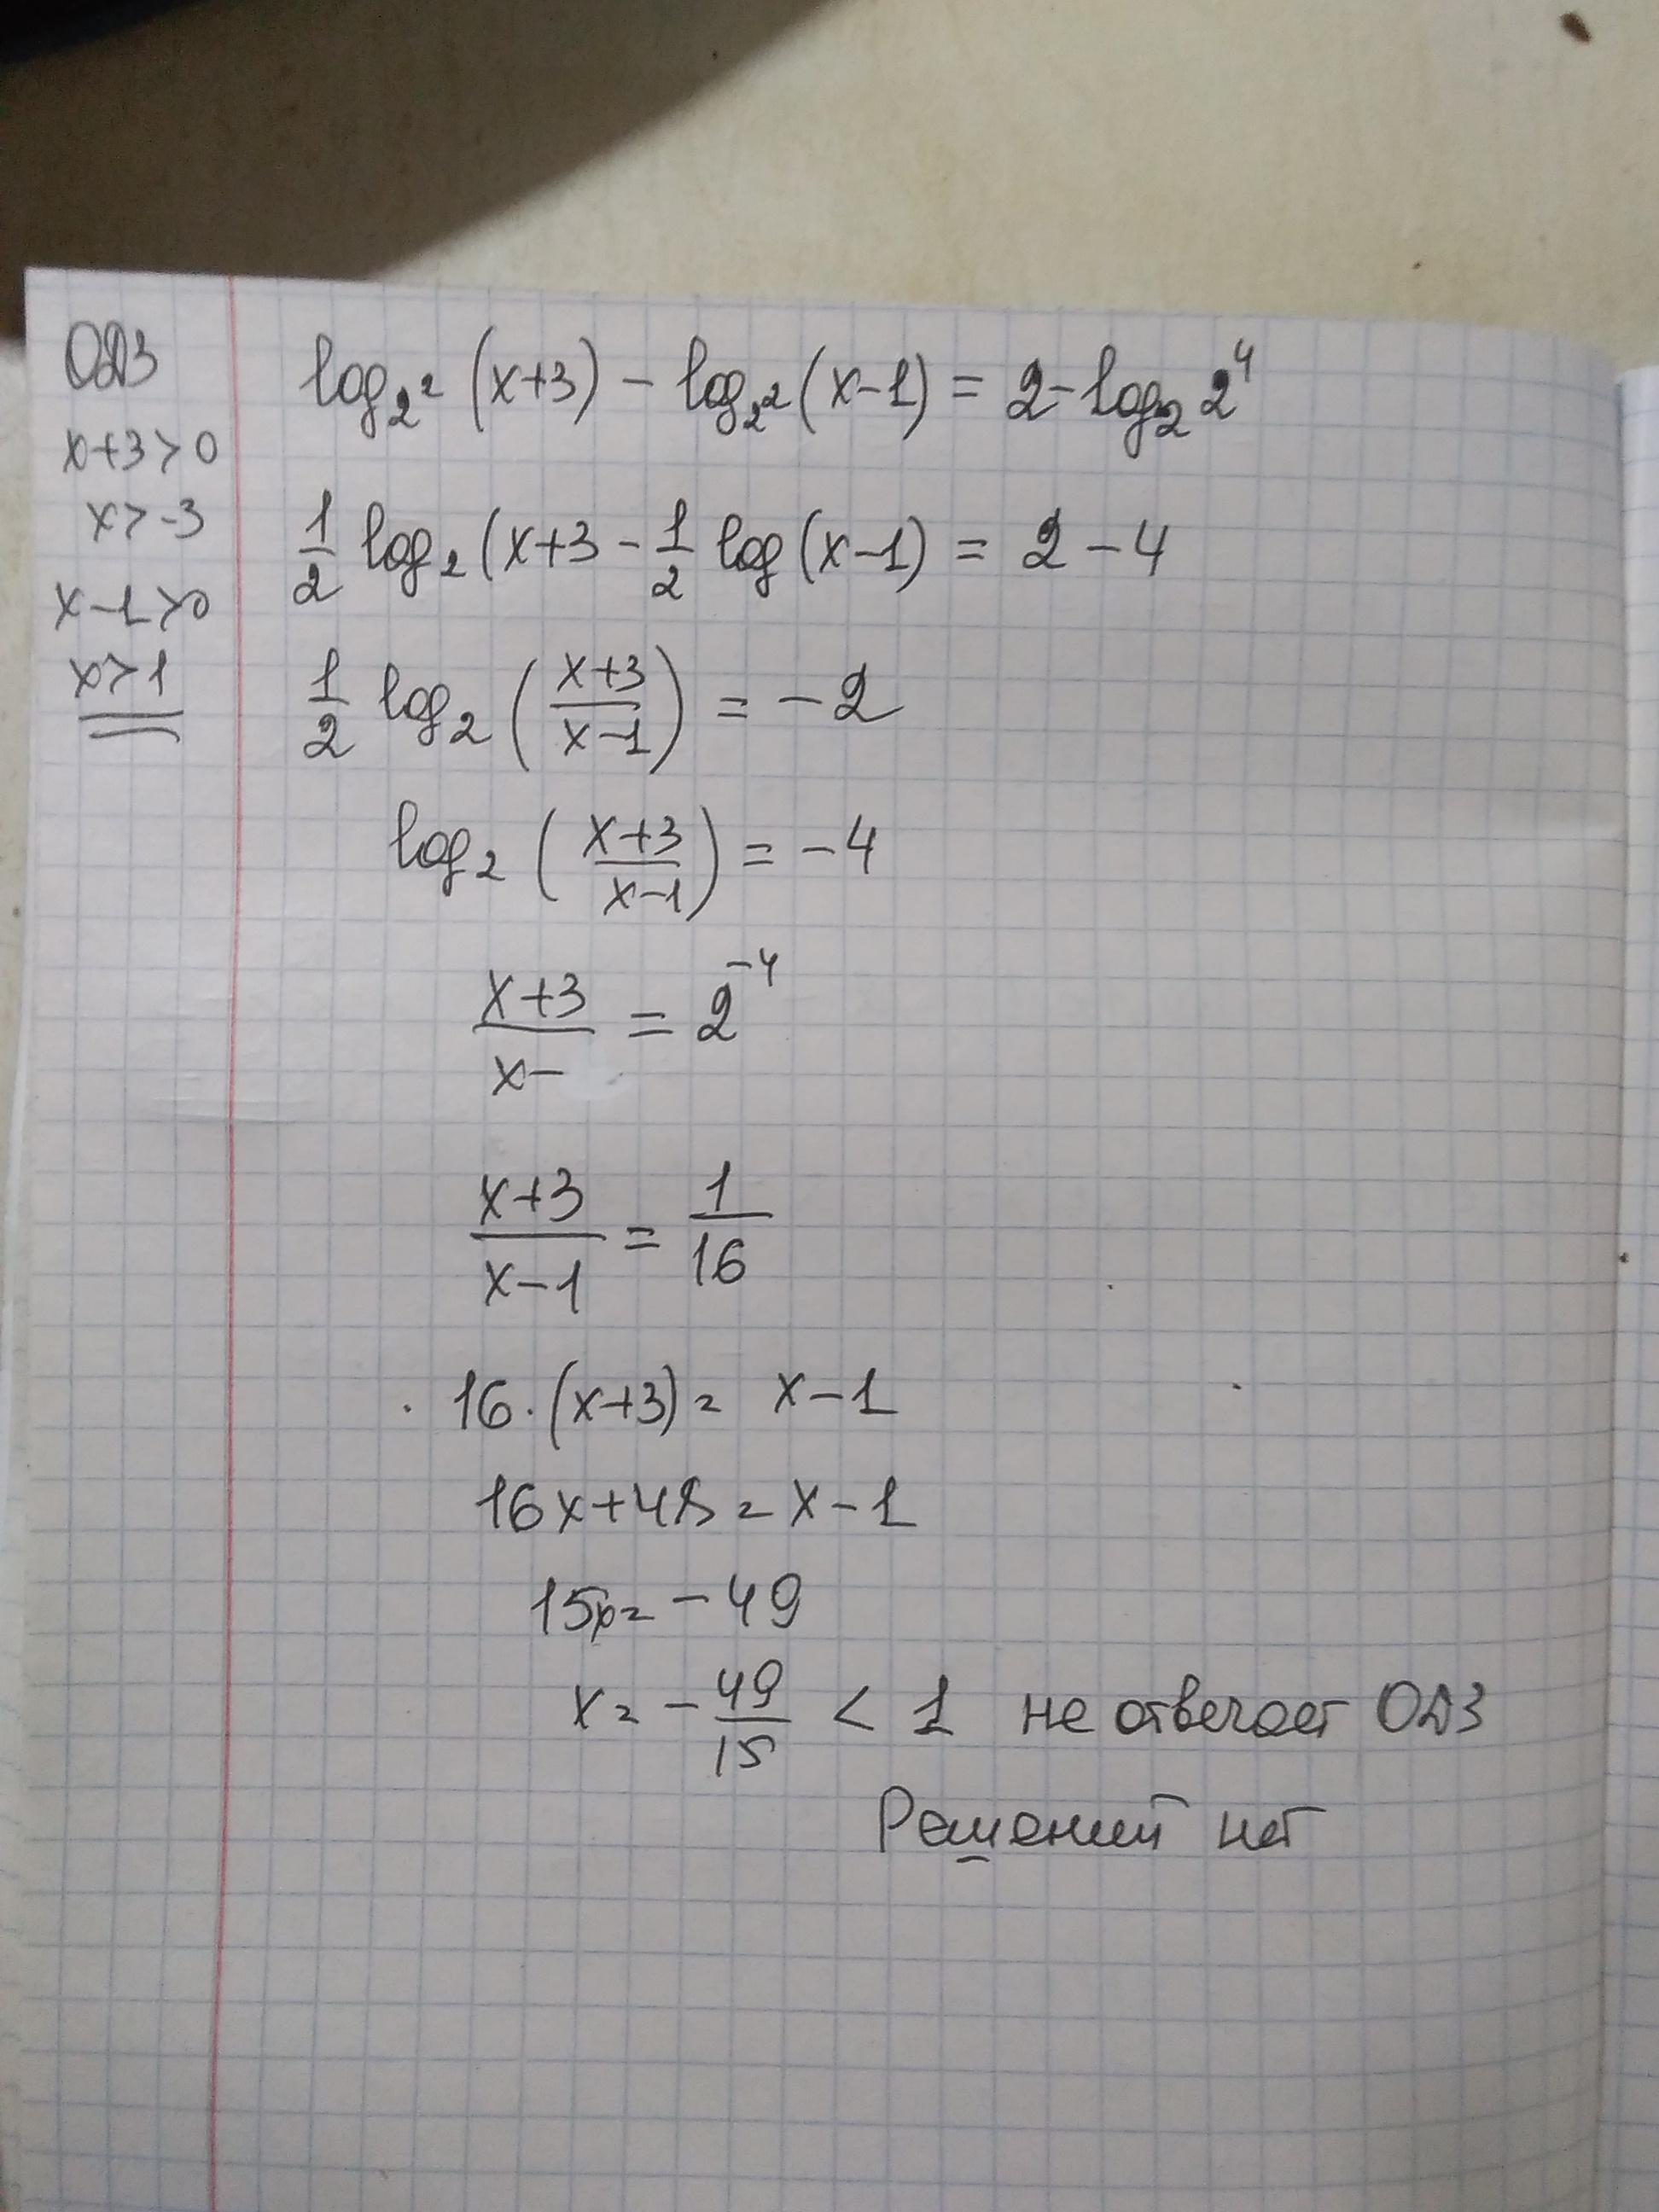 ОДЗ
x+3>0
x>-3
x-1>0
x>1
log₂² (x+3) - log₂² (x-1) = 2 - log₂ 2⁴
1/2 log₂ (x+3 - 1/2 log (x-1) = 2 - 4
1/2 log₂ ((x+3)/(x-1)) = -2
log₂ ((x+3)/(x-1)) = -4
(x+3)/(x- = 2⁻⁴
(x+3)/(x-1) = 1/16
16·(x+3) = x-1
16x+48 = x-1
15x = -49
x = -49/15 < 1 не отвечает ОДЗ
Решений нет